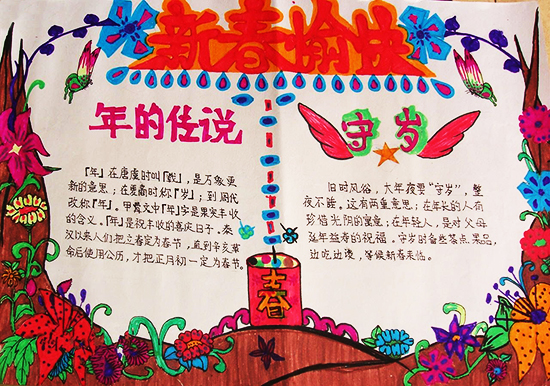 新春愉快
年的传说
「年」在唐虞时叫「载」，是万象更
新的意思；在夏商时称「岁」；到周代
改称「年」。甲骨文中「年」字是果实丰收
的含义。「年」是祝丰收的喜庆日子。秦
汉以来人们把立春定为春节，直到辛亥革
命后使用公历，才把正月初一定为春节。
守岁
旧时风俗，大年夜要"守岁"，整
夜不睡。这有两重意思；在年长的人有
珍惜光阴的寓意；在年轻人，是对父母
延年益寿的祝福。守岁时备些茶点、果品，
边吃边谈，等候新春来临。
春